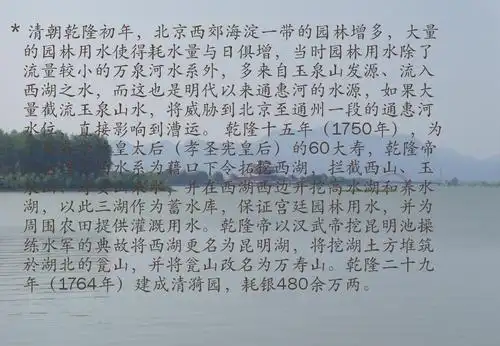 * 清朝乾隆初年，北京西郊海淀一带的园林增多，大量
的园林用水使得耗水量与日俱增，当时园林用水除了
流量较小的万泉河水系外，多来自玉泉山发源、流入
西湖之水，而这也是明代以来通惠河的水源，如果大
量截流玉泉山水，将威胁到北京至通州一段的通惠河
水位，直接影响到漕运。 乾隆十五年（1750年），为
皇太后（孝圣宪皇后）的60大寿，乾隆帝
水系为藉口下令拓挖西湖，拦截西山、玉
并在西湖西边开挖高水湖和养水
湖，以此三湖作为蓄水库，保证宫廷园林用水，并为
周围农田提供灌溉用水。乾隆帝以汉武帝挖昆明池操
练水军的典故将西湖更名为昆明湖，将挖湖土方堆筑
於湖北的瓮山，并将瓮山改名为万寿山。乾隆二十九
年（1764年）建成清漪园，耗银480余万两。